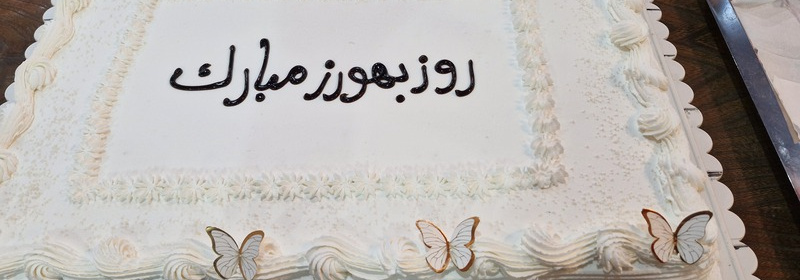 روز بهورز مبارك